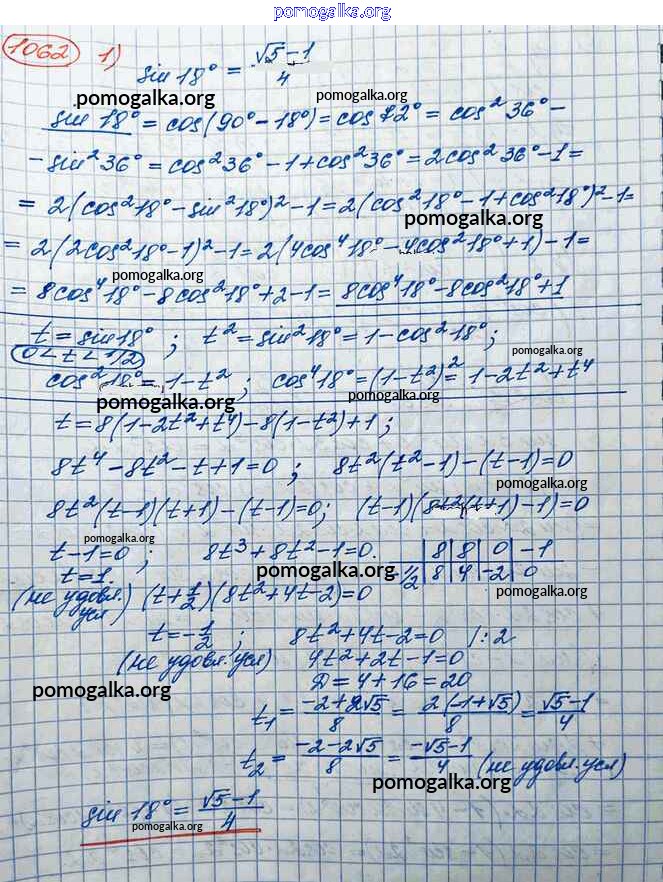 pomogalka.org
1062 1) sin 18° = (√5 – 1)/4
pomogalka.org pomogalka.org
sin 18° = cos(90° – 18°) = cos 72° = cos² 36° –
– sin² 36° = cos² 36° – 1 + cos² 36° = 2cos² 36° – 1 =
= 2(cos² 18° – sin² 18°)² – 1 = 2(cos² 18° – 1 + cos² 18°)² – 1 =
pomogalka.org
= 2(2cos² 18° – 1)² – 1 = 2(4cos⁴ 18° – 4cos² 18° + 1) – 1 =
pomogalka.org
= 8cos⁴ 18° – 8cos² 18° + 2 – 1 = 8cos⁴ 18° – 8cos² 18° + 1
t = sin 18° ; t² = sin² 18° = 1 – cos² 18° ;
0 < t < 1/2 pomogalka.org
cos² 18° = 1 – t² ; cos⁴ 18° = (1 – t²)² = 1 – 2t² + t⁴
pomogalka.org pomogalka.org
t = 8(1 – 2t² + t⁴) – 8(1 – t²) + 1 ;
8t⁴ – 8t² – t + 1 = 0 ; 8t²(t² – 1) – (t – 1) = 0
pomogalka.org
8t²(t – 1)(t + 1) – (t – 1) = 0 ; (t – 1)(8t²(t + 1) – 1) = 0
pomogalka.org
t – 1 = 0 ; 8t³ + 8t² – 1 = 0. | 8 | 8 | 0 | –1
t = 1. pomogalka.org –1/2 | 8 | 4 | –2 | 0
(не удовл. усл) (t + 1/2)(8t² + 4t – 2) = 0 pomogalka.org
t = – 1/2 ; 8t² + 4t – 2 = 0 /: 2
(не удовл. усл) 4t² + 2t – 1 = 0
pomogalka.org D = 4 + 16 = 20
t₁ = (–2 + 2√5)/8 = 2(–1 + √5)/8 = (√5 – 1)/4
t₂ = (–2 – 2√5)/8 = (–√5 – 1)/4 (не удовл. усл)
pomogalka.org
sin 18° = (√5 – 1)/4
pomogalka.org